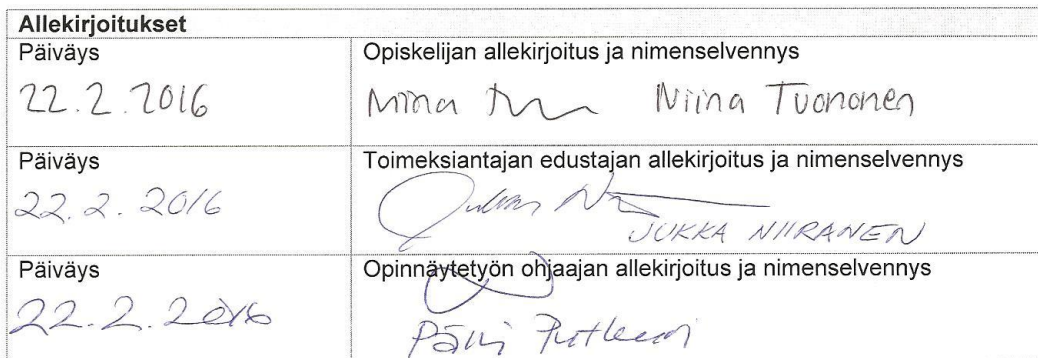 Allekirjoitukset
Päiväys
Opiskelijan allekirjoitus ja nimenselvennys
22.2.2016
Niina Niina Tuononen
Päiväys
Toimeksiantajan edustajan allekirjoitus ja nimenselvennys
22.2.2016
JUKKA NIIRANEN
Päiväys
Opinnäytetyön ohjaajan allekirjoitus ja nimenselvennys
22.2.2016
Päivi